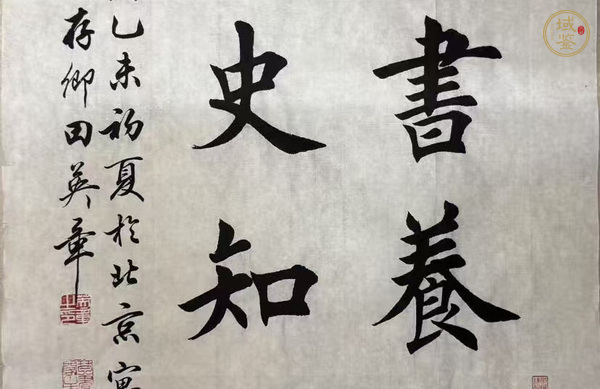 書養
史知
乙未初夏於北京寓
存卿田英章
域鑒